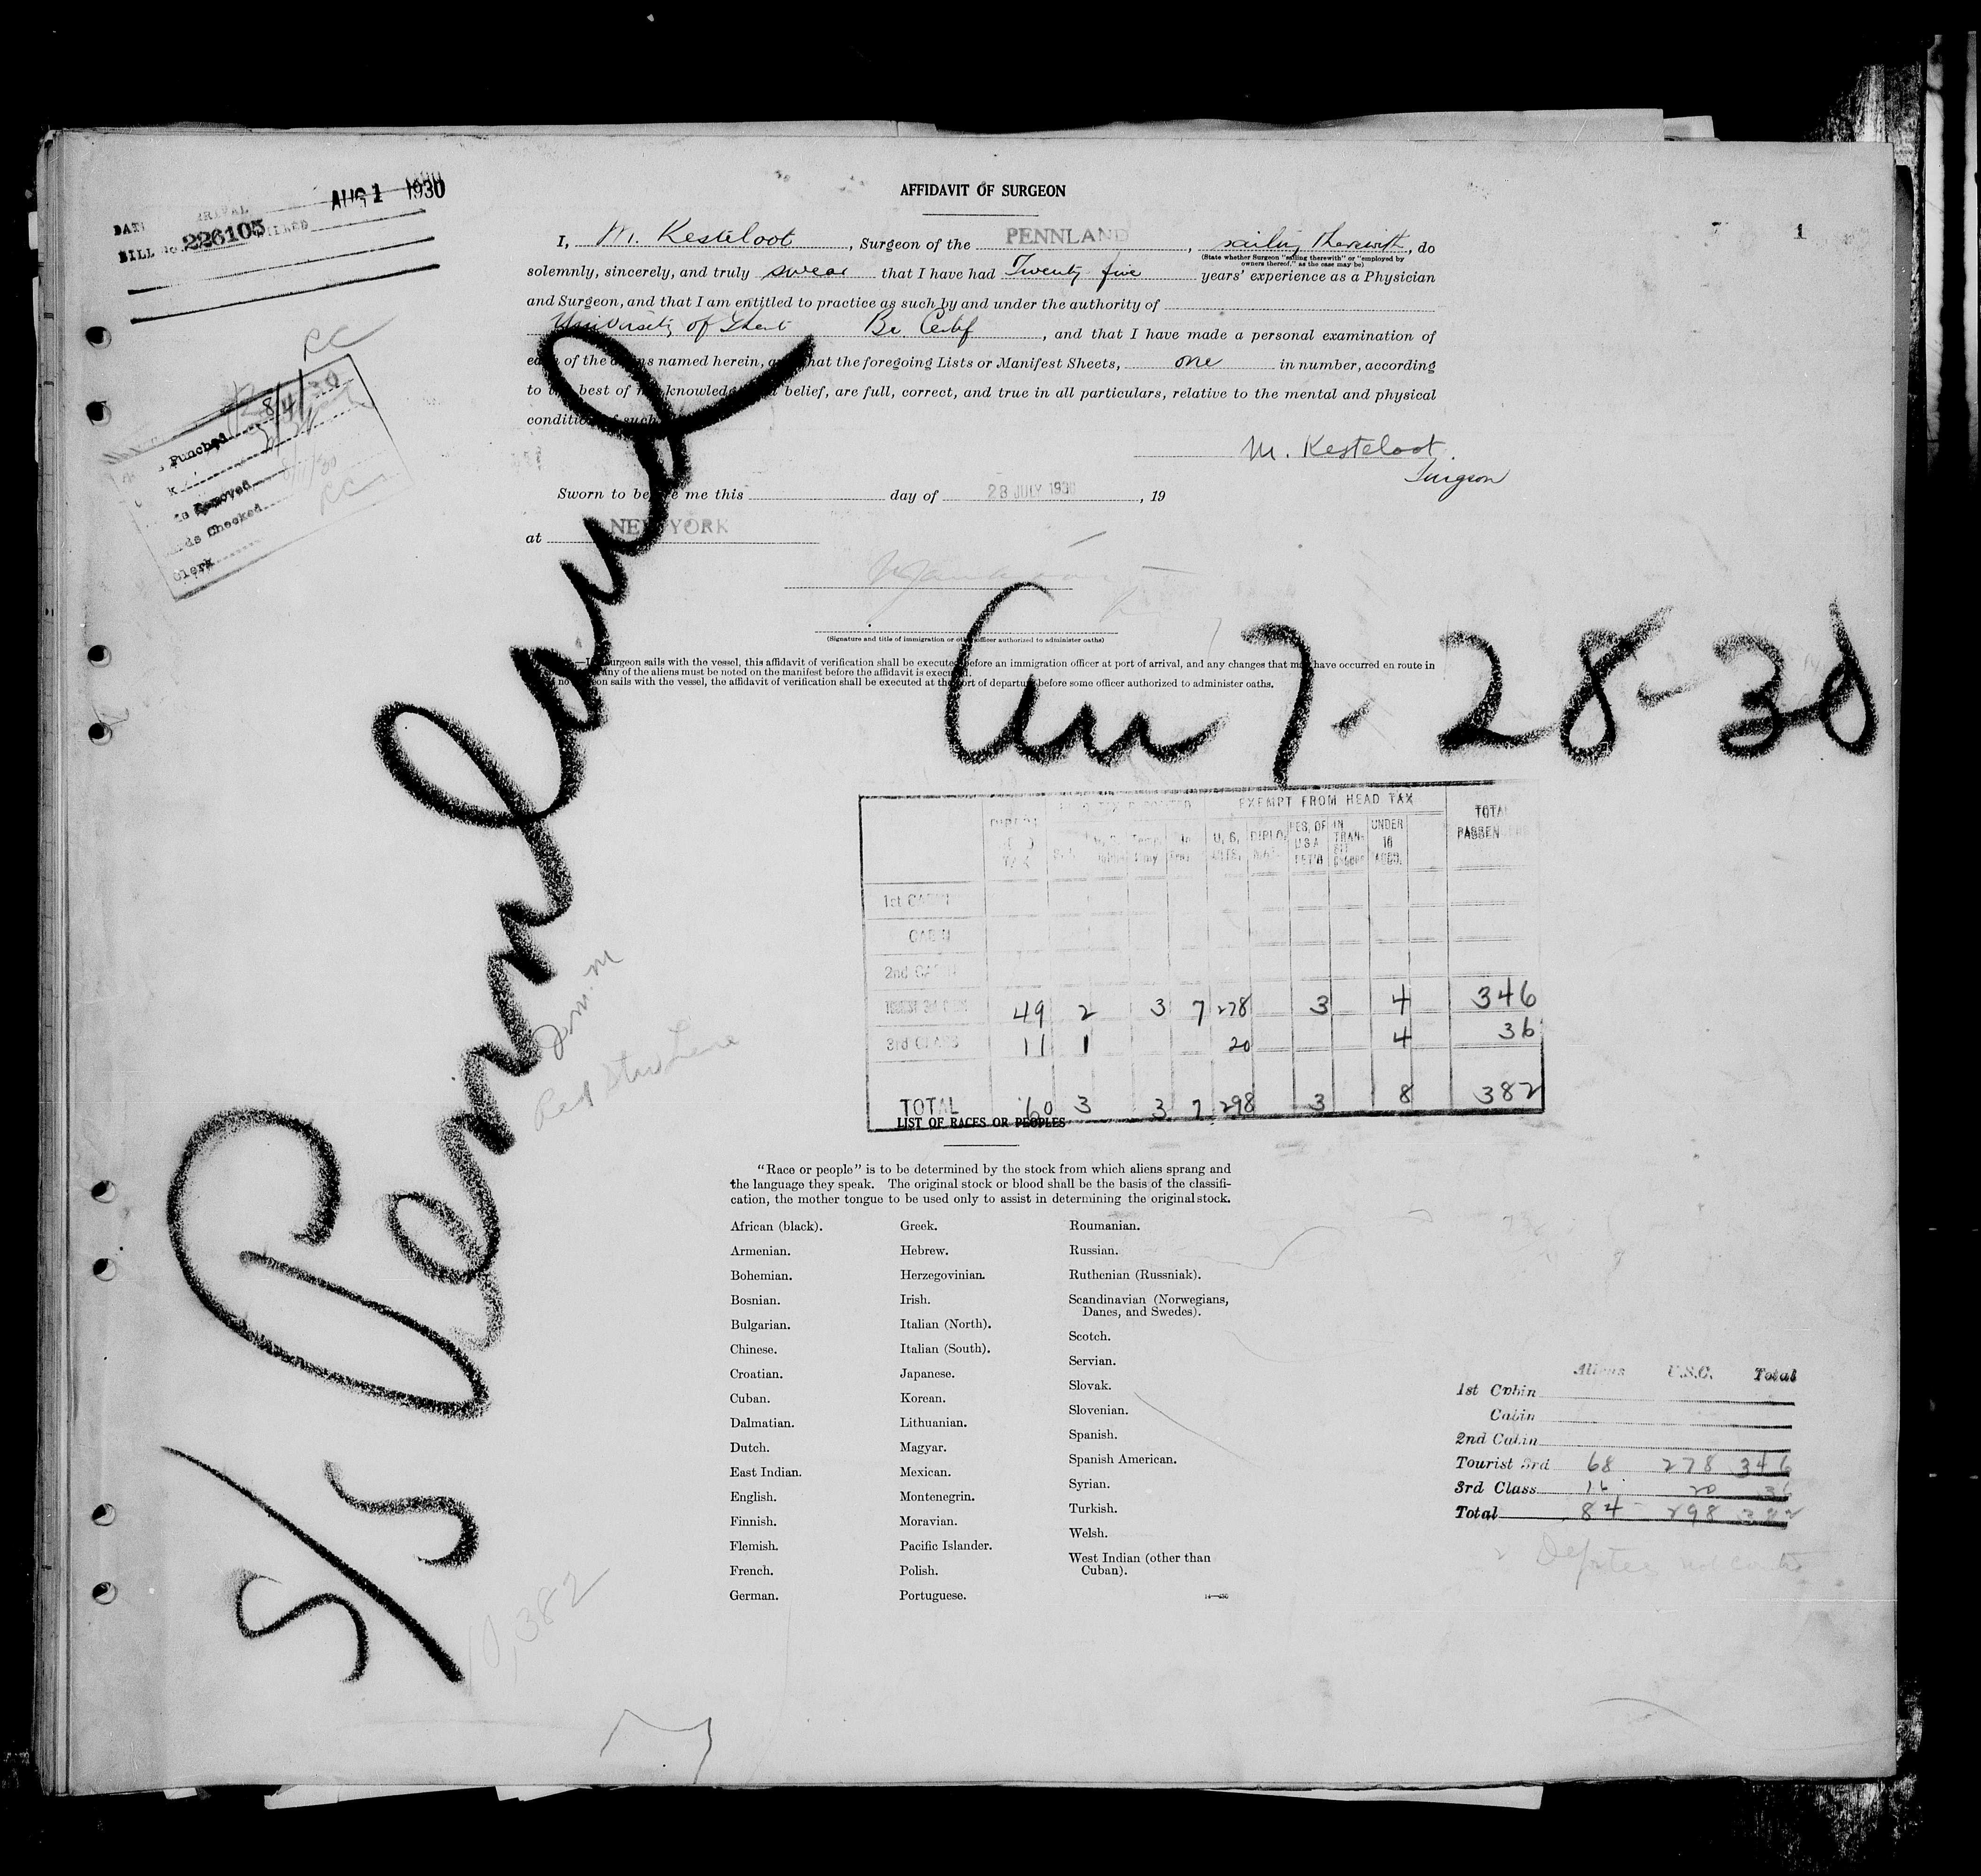 AUG 1 1930
BILL No. 226105
AFFIDAVIT OF SURGEON
1
I, M. Kesteloot, Surgeon of the PENNLAND, sailing therewith, do
(State whether Surgeon "sailing therewith" or "employed by
owners thereof," as the case may be)
solemnly, sincerely, and truly swear that I have had Twenty five years' experience as a Physician
and Surgeon, and that I am entitled to practice as such by and under the authority of
University of Ghent Be. Certif, and that I have made a personal examination of
of the named herein, hat the foregoing Lists or Manifest Sheets, one in number, according
to best of knowled belief, are full, correct, and true in all particulars, relative to the mental and physical
condition such
M. Kesteloot
Surgeon
Sworn to before me this day of 28 JULY 1930, 19
at NEW YORK
RC
Punched 8/4/30
Removed
Checked
Clerk
(Signature and title of immigration or other officer authorized to administer oaths)
surgeon sails with the vessel, this affidavit of verification shall be executed before an immigration officer at port of arrival, and any changes that may have occurred en route in
any of the aliens must be noted on the manifest before the affidavit is executed.
sails with the vessel, the affidavit of verification shall be executed at the port of departure before some officer authorized to administer oaths.
S/S Pennland
Arr 7-28-30
EXEMPT FROM HEAD TAX
TOTAL PASSEN
TAX U.S. DIPLO. RES. OF U.S.A. RET'G IN TRAN-SIT UNDER 16
1st CABIN
CABIN
2nd CABIN
TOURIST 3rd CABIN 49 2 3 7 278 3 4 346
3rd CLASS 11 1 20 4 36
TOTAL 60 3 3 7 298 3 8 382
Red Star Line
LIST OF RACES OR PEOPLES
"Race or people" is to be determined by the stock from which aliens sprang and
the language they speak. The original stock or blood shall be the basis of the classifi-
cation, the mother tongue to be used only to assist in determining the original stock.
African (black).
Armenian.
Bohemian.
Bosnian.
Bulgarian.
Chinese.
Croatian.
Cuban.
Dalmatian.
Dutch.
East Indian.
English.
Finnish.
Flemish.
French.
German.
Greek.
Hebrew.
Herzegovinian.
Irish.
Italian (North).
Italian (South).
Japanese.
Korean.
Lithuanian.
Magyar.
Mexican.
Montenegrin.
Moravian.
Pacific Islander.
Polish.
Portuguese.
Roumanian.
Russian.
Ruthenian (Russniak).
Scandinavian (Norwegians,
Danes, and Swedes).
Scotch.
Servian.
Slovak.
Slovenian.
Spanish.
Spanish American.
Syrian.
Turkish.
Welsh.
West Indian (other than
Cuban).
Aliens U.S.C. Total
1st Cabin
Cabin
2nd Cabin
Tourist 3rd 68 278 346
3rd Class 16 20 36
Total 84 298 382
382